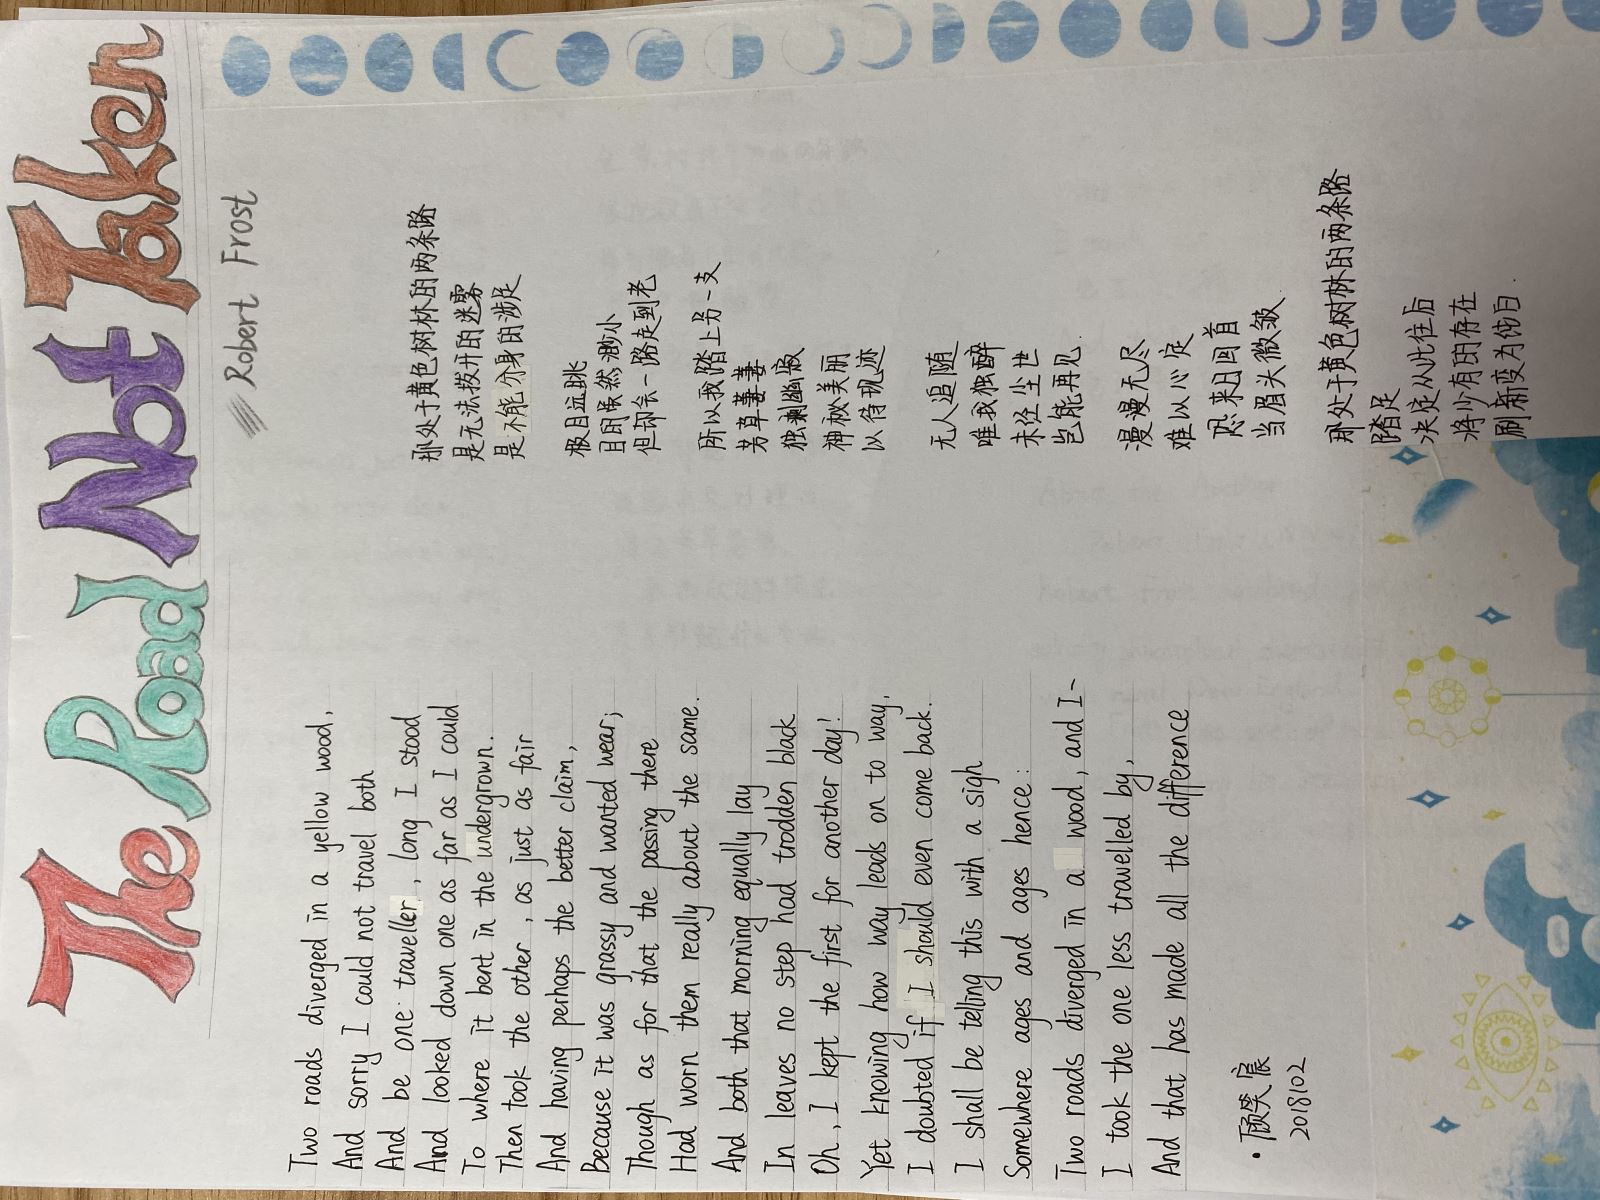 The Road Not Taken
Robert Frost
Two roads diverged in a yellow wood,
And sorry I could not travel both
And be one traveller, long I stood
And looked down one as far as I could
To where it bent in the undergrown.
Then took the other, as just as fair
And having perhaps the better claim,
Because it was grassy and wanted wear;
Though as for that the passing there
Had worn them really about the same.
And both that morning equally lay
In leaves no step had trodden black
Oh, I kept the first for another day!
Yet knowing how way leads on to way,
I doubted if I should even come back.
I shall be telling this with a sigh
Somewhere ages and ages hence:
Two roads diverged in a wood, and I~
I took the one less travelled by,
And that has made all the difference
·顾笑宸
2018102
那处于黄色树林的两条路
是无法拨开的迷雾
是不能分身的涉足
极目远眺
目的虽然渺小
但却会一路走到老
所以我踏上另一支
芳草萋萋
独剩幽寂
神秘美丽
以待现迹
无人追随
唯我独醉
未经尘世
岂能再见.
漫漫无尽
难以心定
恐来日回首
当眉头微皱
那处于黄色树林的两条路
踏足
决定从此往后
将少有的存在
刷新变为纯白.